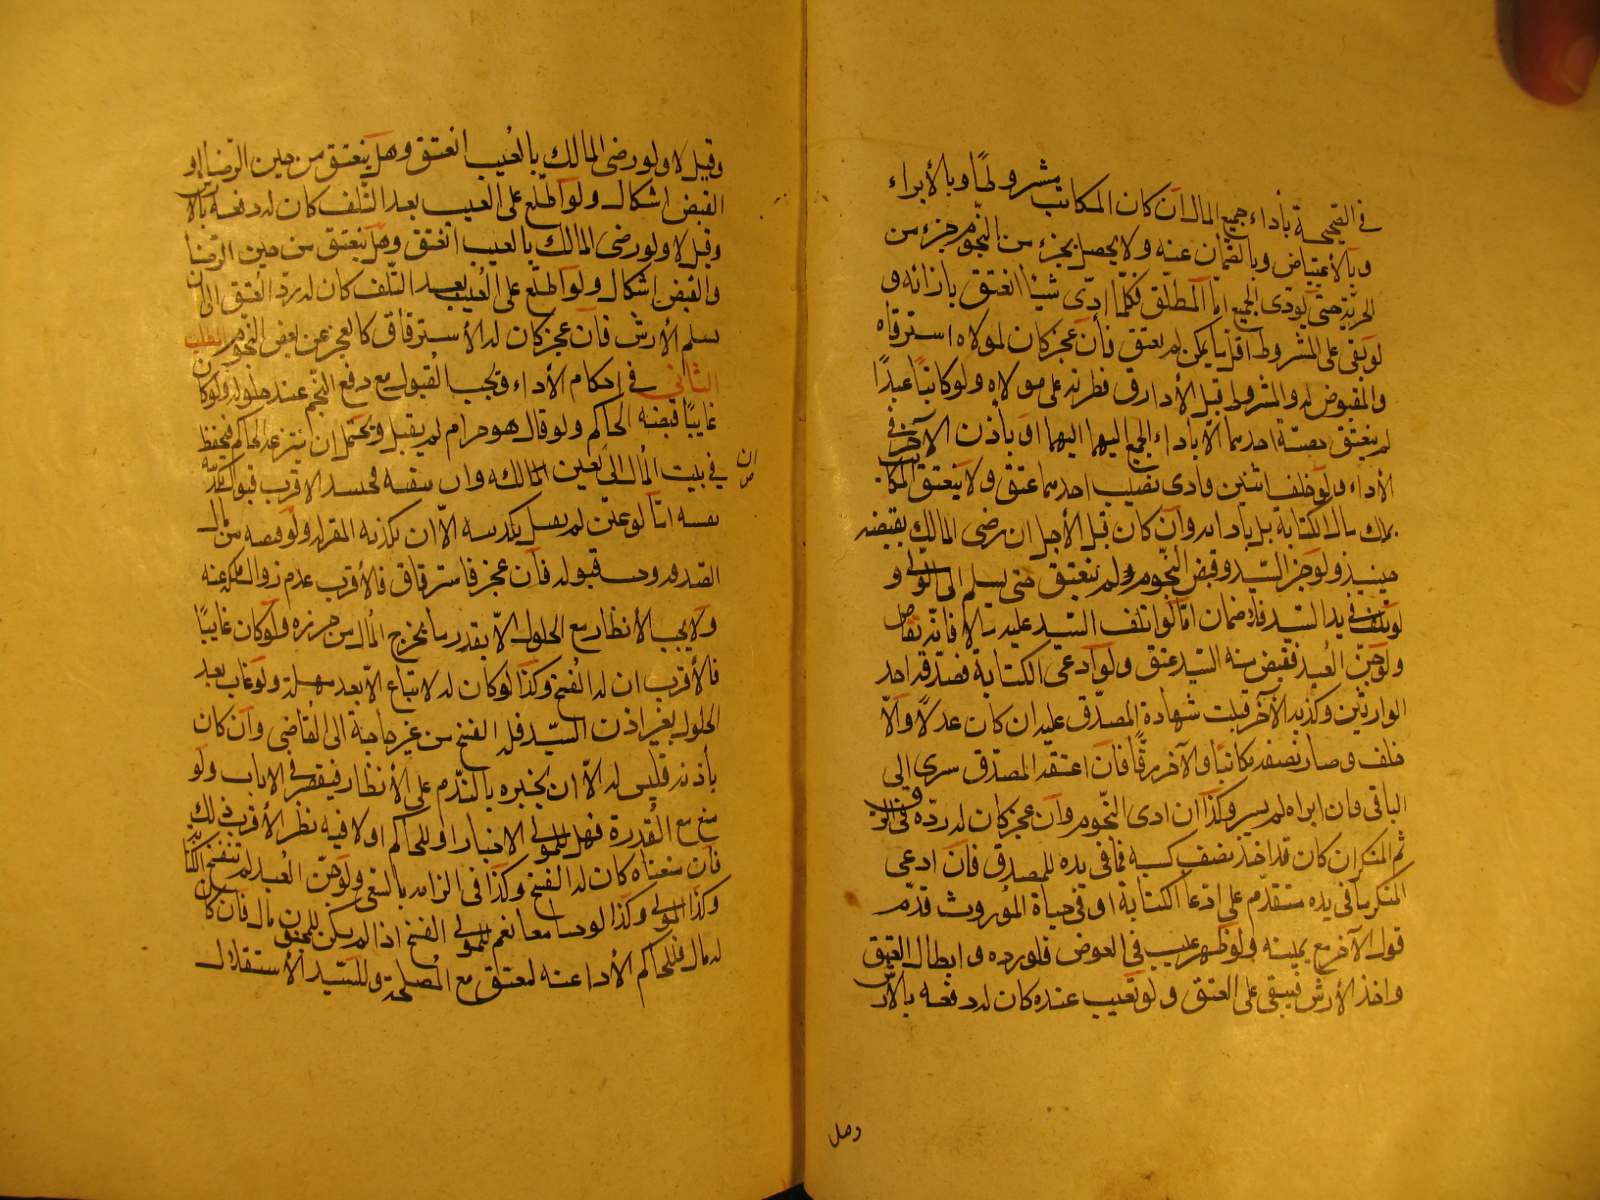 في الصحيحة بأداء جميع المال ان كان المكاتب مشروطًا وبالأبراء
وبالأعتياض وبالضمان عنه ولا يحصل بجزء من النجوم جزء من
الحرية حتى يؤدى الجميع اما المطلق فكلما ادّى شيئا انعتق بازائه و
لو بقى على المشروط اقل ما يمكن لم يعتق فأن عجز كان لمولاه استرقاه
والمقبوض له والمشروط قبل الأدا رق فطرته على مولاه ولو كاتبا عبدًا
لم ينعتق حصة احدهما الا باداء الجميع اليهما او بأذن الآخر في
الأداء ولو خلف اثنين فادى نصيب احدهما عتق ولا ينعتق المكاتب
بملك مال الكتابة بل باداىه وان كان قبل الأجل ان رضى المالك بقبضه
حينىذ ولو جنّ السيّد وقبض النجوم لم ينعتق حتى يسلم الى الولي و
لو تلف في يد السيّد فلا ضمان امّا لو اتلف السيّد عليه مالا فانّه تقاص
ولو جنّ العبد فقبض منه السيّد عتق ولو ادعى الكتابة فصدّقه احد
الوارثين وكذّبه الآخر قبلت شهادة المصدّق عليه ان كان عدلًا والّا
حلف وصار نصفه مكاتبا والآخر رقّا فان اعتقه المصدّق سرى الى
الباقى وان ابراه لم يسر وكذا ان ادى النّجوم وان عجز كان له ردّه فى الرق
ثم المنكر ان كان قد اخذ نصف كسبه فما فى يده للمصدق فان ادعى
المنكر ما فى يده متقدّم على ادّعا الكتابة او فى حياة المورّوث قدّم
قول الآخر مع يمينه ولو ظهر عيب فى العوض فله رده وابطال العتق
واخذ الأرش فيبقى على العتق ولو تعيب عنده كان له دفعه بالأرش
وهل
وقيل لا ولو رضى المالك بالعيب انعتق وهل ينعتق من حين الرّضا او
القبض اشكال ولو اطّلع على العيب بعد التّلف كان له دفعه بالأرش
وقيل لا ولو رضى المالك بالعيب انعتق وهل ينعتق من حين الرّضا
والقبض اشكال ولو اطّلع على العيب بعد التّلف كان له ردّ العتق الى ان
يسلم الأرش فأن عجز كان له الأسترقاق كالعجز عن بعض النجوم المطلب
الثانى في احكام الأداء ويجب القبول مع دفع النّجم عند حلوله ولو كان
غايبًا قبضه الحاكم ولو قال هو حرام لم يقبل ويحتمل ان ينتزعه الحاكم فيحفظ
في بيت المال الى تعين المالك وان فحينىد الاقرب قبول تكذيبه
نفسه امّا لو عيّن لم يقبل تكذيبه الّا ان يكذبه المقر له ولو قبضه من مال
الصدقه وجب قبوله فان عجز فاسترقاق فالأقرب عدم زوال ملكه عنه
ولا يجب الأنظار مع الحلول الّا بقدر ما يخرج المال من حرزه فلو كان غايبًا
فالأقرب ان له الفسخ وكذا لو كان له لا تباع الّا بعد مهلة ولو غاب بعد
الحلول بغير اذن السيّد فله الفسخ من غير حاجة الى القاضى وان كان
بأذنه فليس له الّا ان يخبره بالنّدم على الأنظار فيقصر فى الاياب ولو
منع مع القدرة فهل للمولى الاخبار او للحاكم او لا فيه نظر الأقرب ذلك
فان منعناه كان له الفسخ وكذا فى الزامه بالسعى ولو جنّ العبد لم تنفسخ الكتابة
وكذا المولى وكذا لو جنا معا نعم للمولى الفسخ اذا لم يكن للمجنون مال فان كان
له مال فللحاكم الأدا عنه لىعتق مع المصلحة وللسيّد الأستقلال